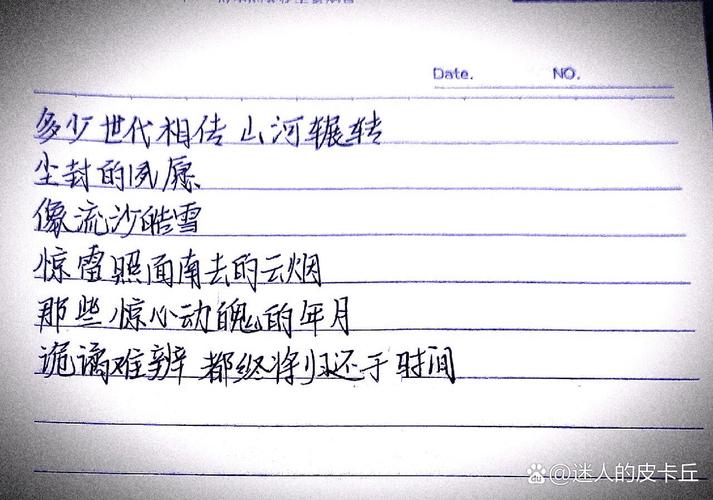 Date.
NO.
多少世代相传 山河辗转
尘封的夙愿
像流沙皓雪
惊雷照面南去的云烟
那些惊心动魄的年月
诡谲难辨 都终将归还于时间
@迷人的皮卡丘